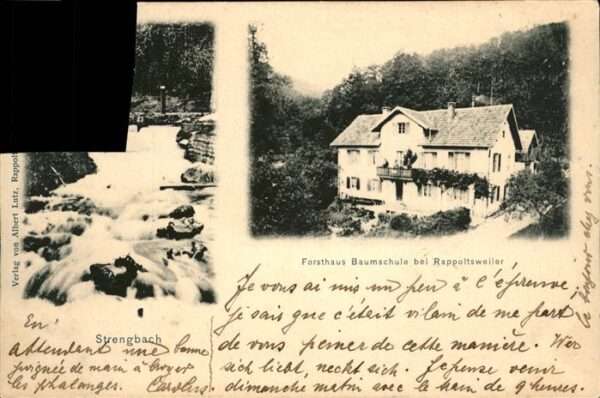 Verlag von Albert Lutz, Rappolt
Forsthaus Baumschule bei Rappoltsweiler
Strengbach
Je vous ai mis un peu à l'épreuve
je sais que c'était vilain de me part
de vous peiner de cette manière. Wer
sich liebt, neckt sich. Je pense venir
dimanche matin avec le train de 9 heures.
En
attendant une bonne
poignée de main à broyer
les phalanges. Carolus.
le bonjour chez vous.